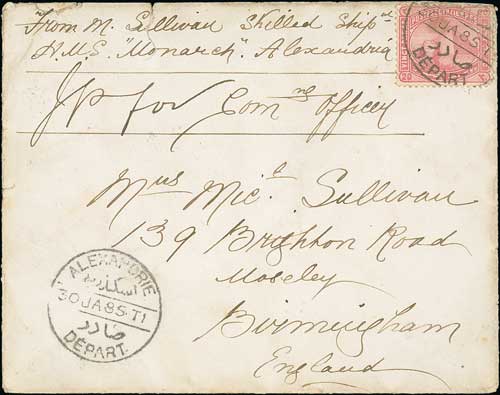 From M. Sullivan Skilled Ship wt
H.M.S. "Monarch" Alexandria
for Comng Officer
Mrs Micl Sullivan
139 Brighton Road
Moseley
Birmingham
England
ALEXANDRIE
اسكندرية
30 JA 85 · T1
صادر
DÉPART.
JA 85
صادر
DÉPART
20